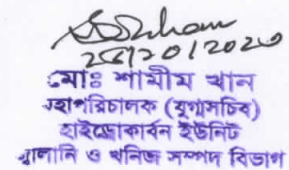 ২৫/১০/২০২৩
মোঃ শামীম খান
মহাপরিচালক (যুগ্মসচিব)
হাইড্রোকার্বন ইউনিট
জ্বালানি ও খনিজ সম্পদ বিভাগ